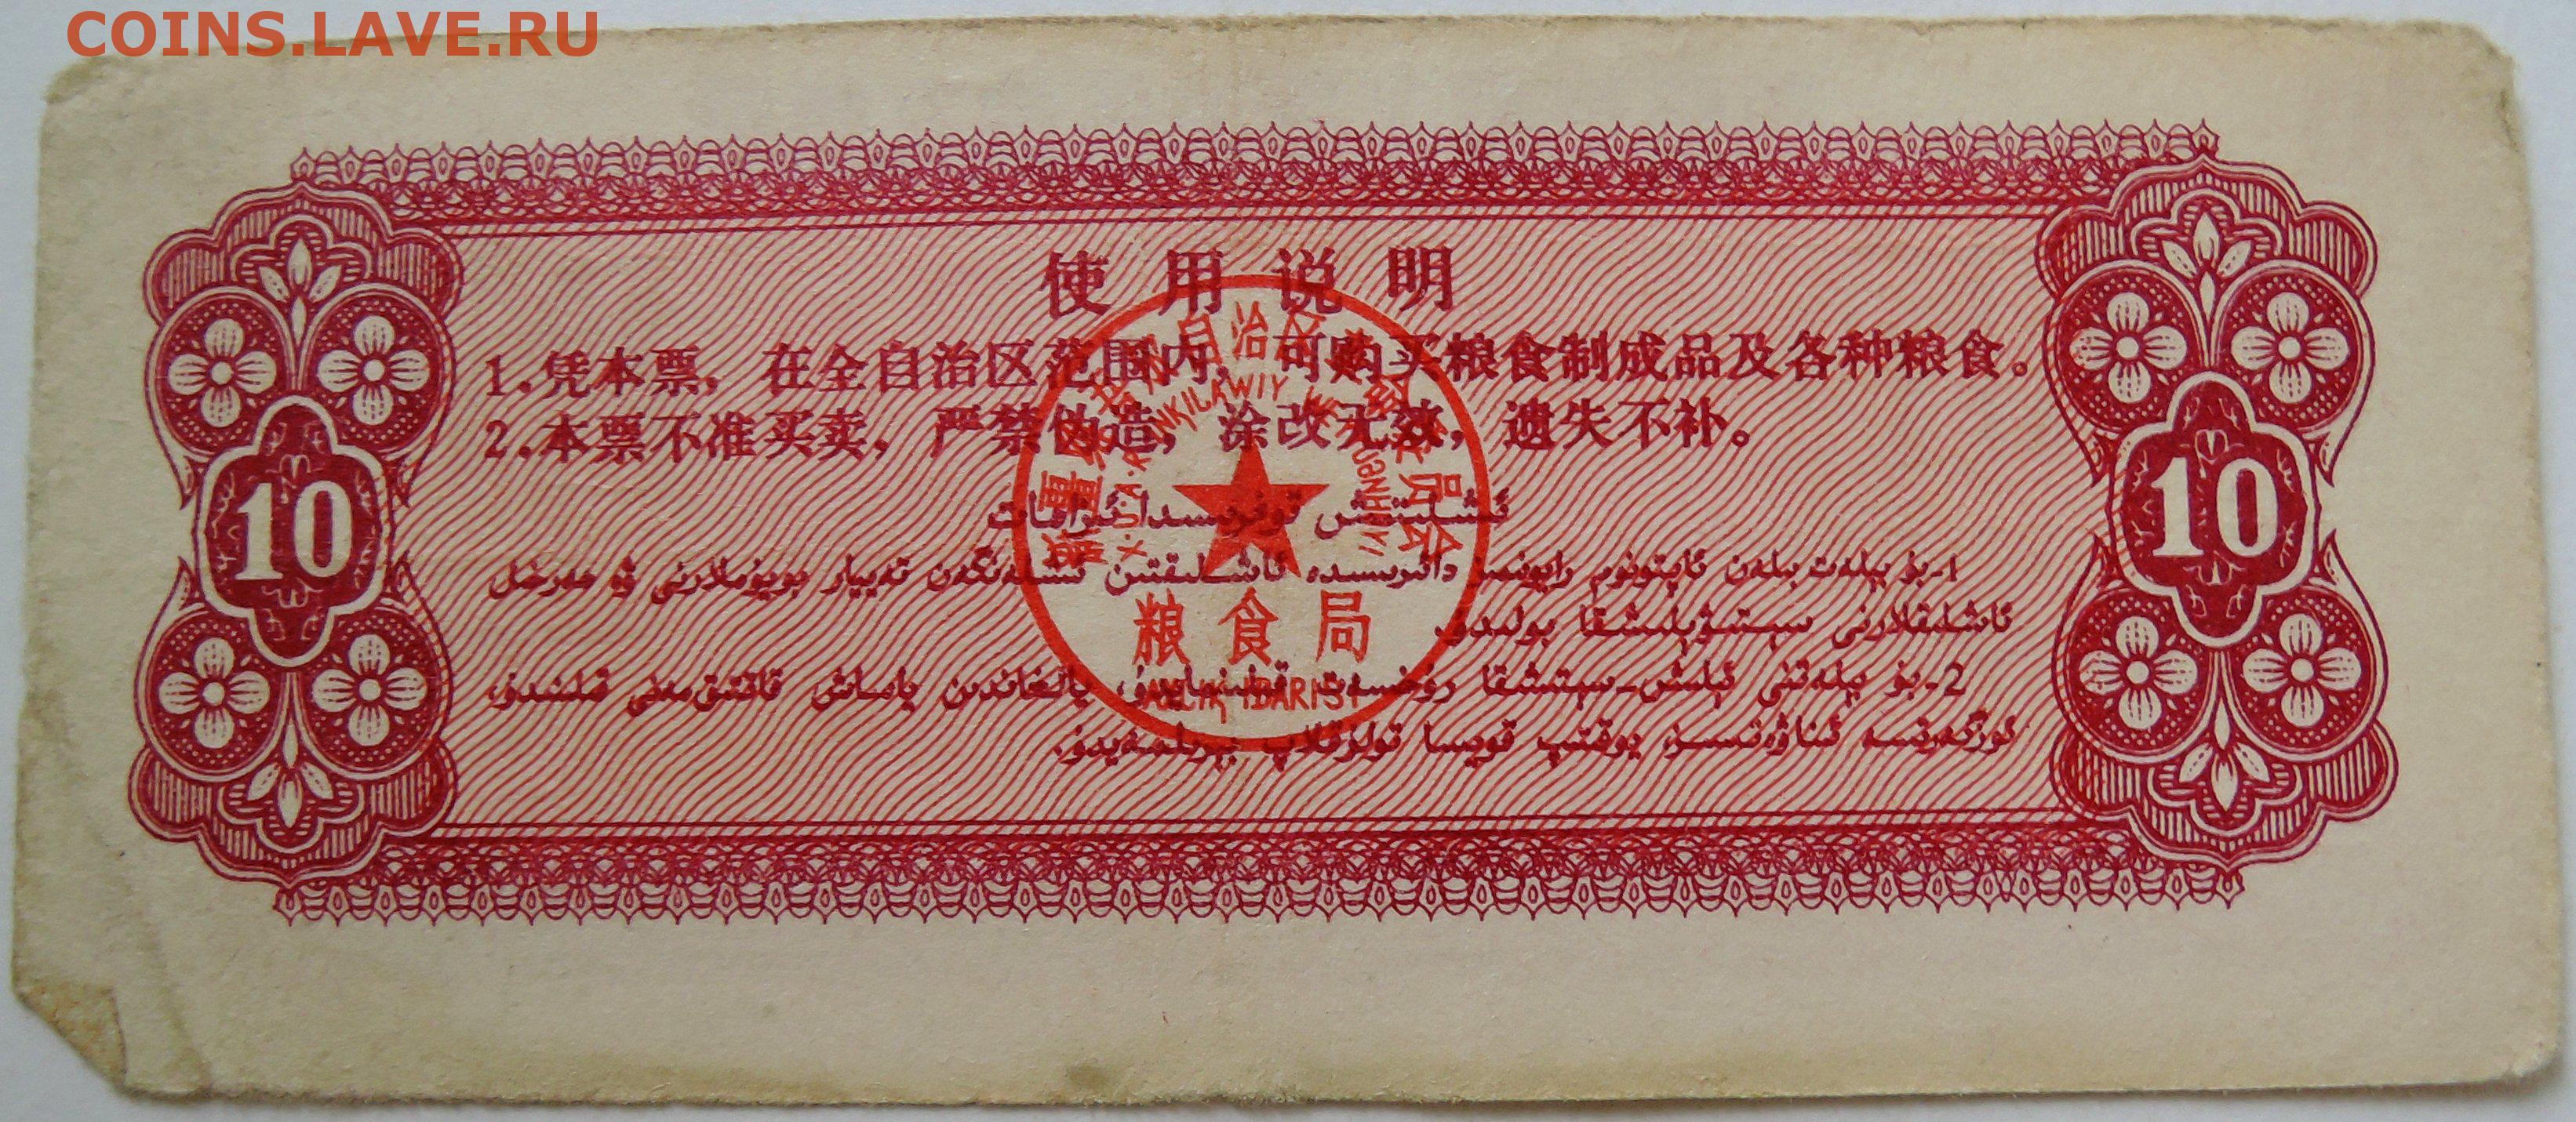 COINS.LAVE.RU
使用说明
1.凭本票，在全自治区范围内，可购买粮食制成品及各种粮食。
2.本票不准买卖，严禁伪造，涂改无效，遗失不补。
自治区
粮食局
10
10
1-بۇ بېلەت بىلەن ئاپتونوم رايونىمىز دائىرىسىدە ئاشلىقتىن ئىشلەنگەن تەييار بويۇملارنى ۋە ھەرخىل
ئاشلىقلارنى سېتىۋېلىشقا بولىدۇ
2-بۇ بېلەتنى ئېلىش-سېتىشقا رۇخسەت قىلىنمايدۇ، يالغاندىن ياساش قاتتىق مەنى قىلىنىدۇ،
ئۆزگەرتسە ئىناۋەتسىز، يوقىتىپ قويسا تولۇقلاپ بېرىلمەيدۇ.
AXLIⱪ IDARISI